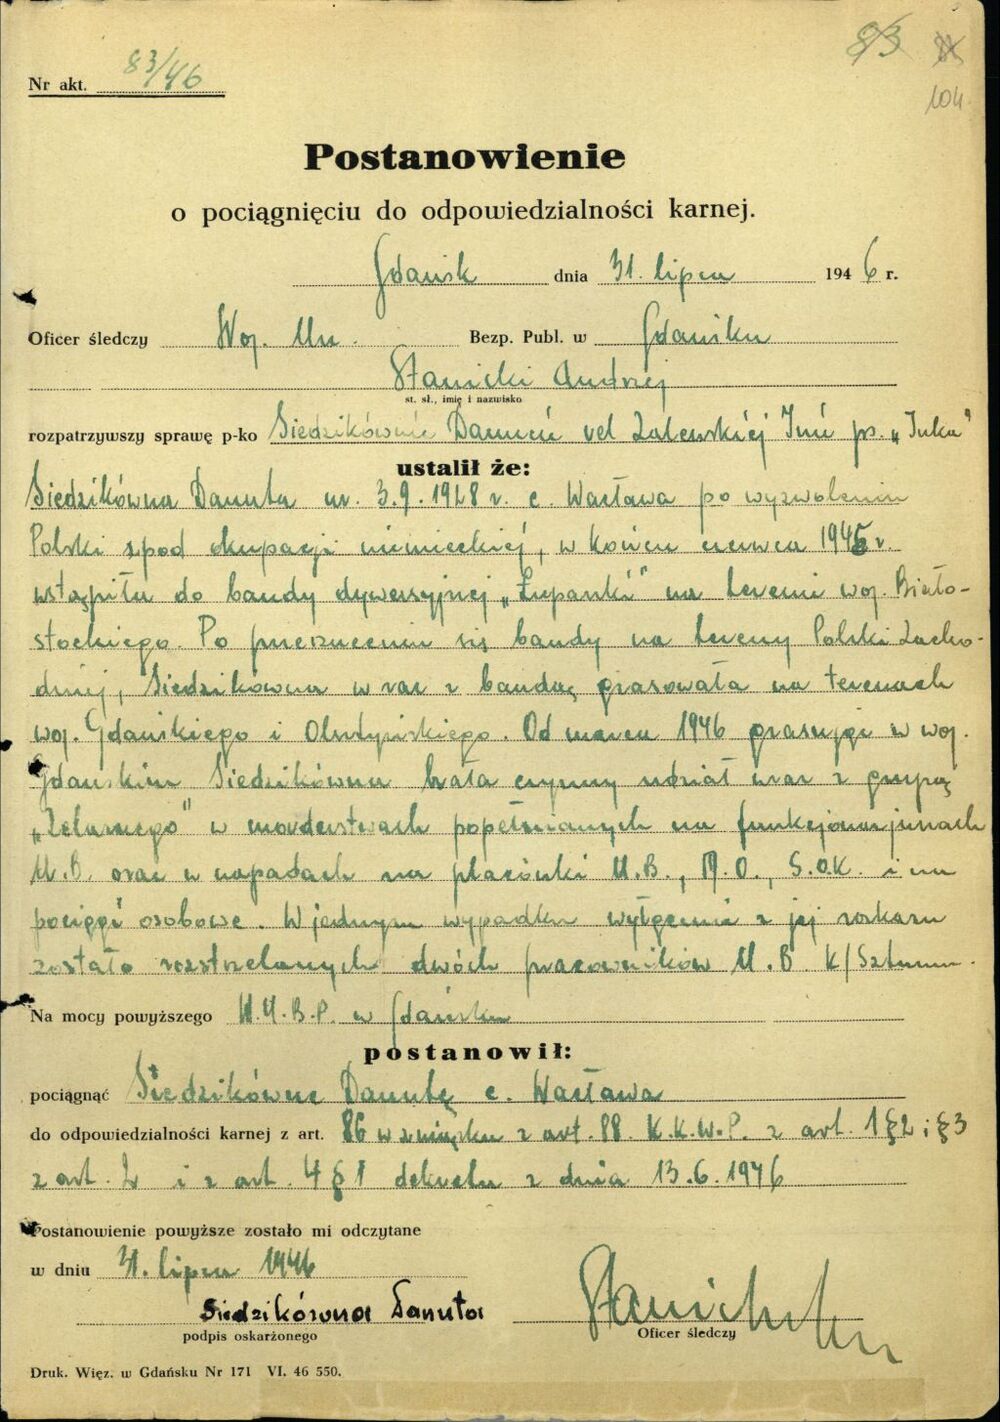 83
104
Nr akt. 83/46
Postanowienie
o pociągnięciu do odpowiedzialności karnej.
Gdańsk dnia 31. lipca 1946 r.
Oficer śledczy Woj. Urz. Bezp. Publ. w Gdańsku
Stanicki Andrzej
st. sł., imię i nazwisko
rozpatrzywszy sprawę p-ko Siedzikównie Danucie vel Zalewskiej Inie ps. „Inka"
ustalił że:
Siedzikówna Danuta ur. 3.9.1928 r. c. Wacława po wyzwoleniu
Polski spod okupacji niemieckiej, w końcu czerwca 1945 r.
wstąpiła do bandy dywersyjnej „Łupaszki" na terenie woj. Biało-
stockiego. Po przerzuceniu się bandy na tereny Polski Zacho-
dniej, Siedzikówna wraz z bandą grasowała na terenach
woj. Gdańskiego i Olsztyńskiego. Od marca 1946 grasując w woj.
Gdańskim Siedzikówna brała czynny udział wraz z grupą
„Żelaznego" w morderstwach popełnianych na funkcjonarjuszach
U.B. oraz w napadach na placówki U.B., M.O., S.O.K. i na
pociągi osobowe. W jednym wypadku wyłącznie z jej rozkazu
zostało rozstrzelanych dwóch pracowników U.B. k/Sztumu.
Na mocy powyższego W.U.B.P. w Gdańsku
postanowił:
pociągnąć Siedzikównę Danutę c. Wacława
do odpowiedzialności karnej z art. 86 w związku z art. 88. K.K.W.P. z art. 1 § 2 i § 3
z art. 2 i z art. 4 § 1 dekretu z dnia 13.6.1946
Postanowienie powyższe zostało mi odczytane
w dniu 31. lipca 1946
Siedzikówna Danuta
podpis oskarżonego
Oficer śledczy
Druk. Więz. w Gdańsku Nr 171 VI. 46 550.